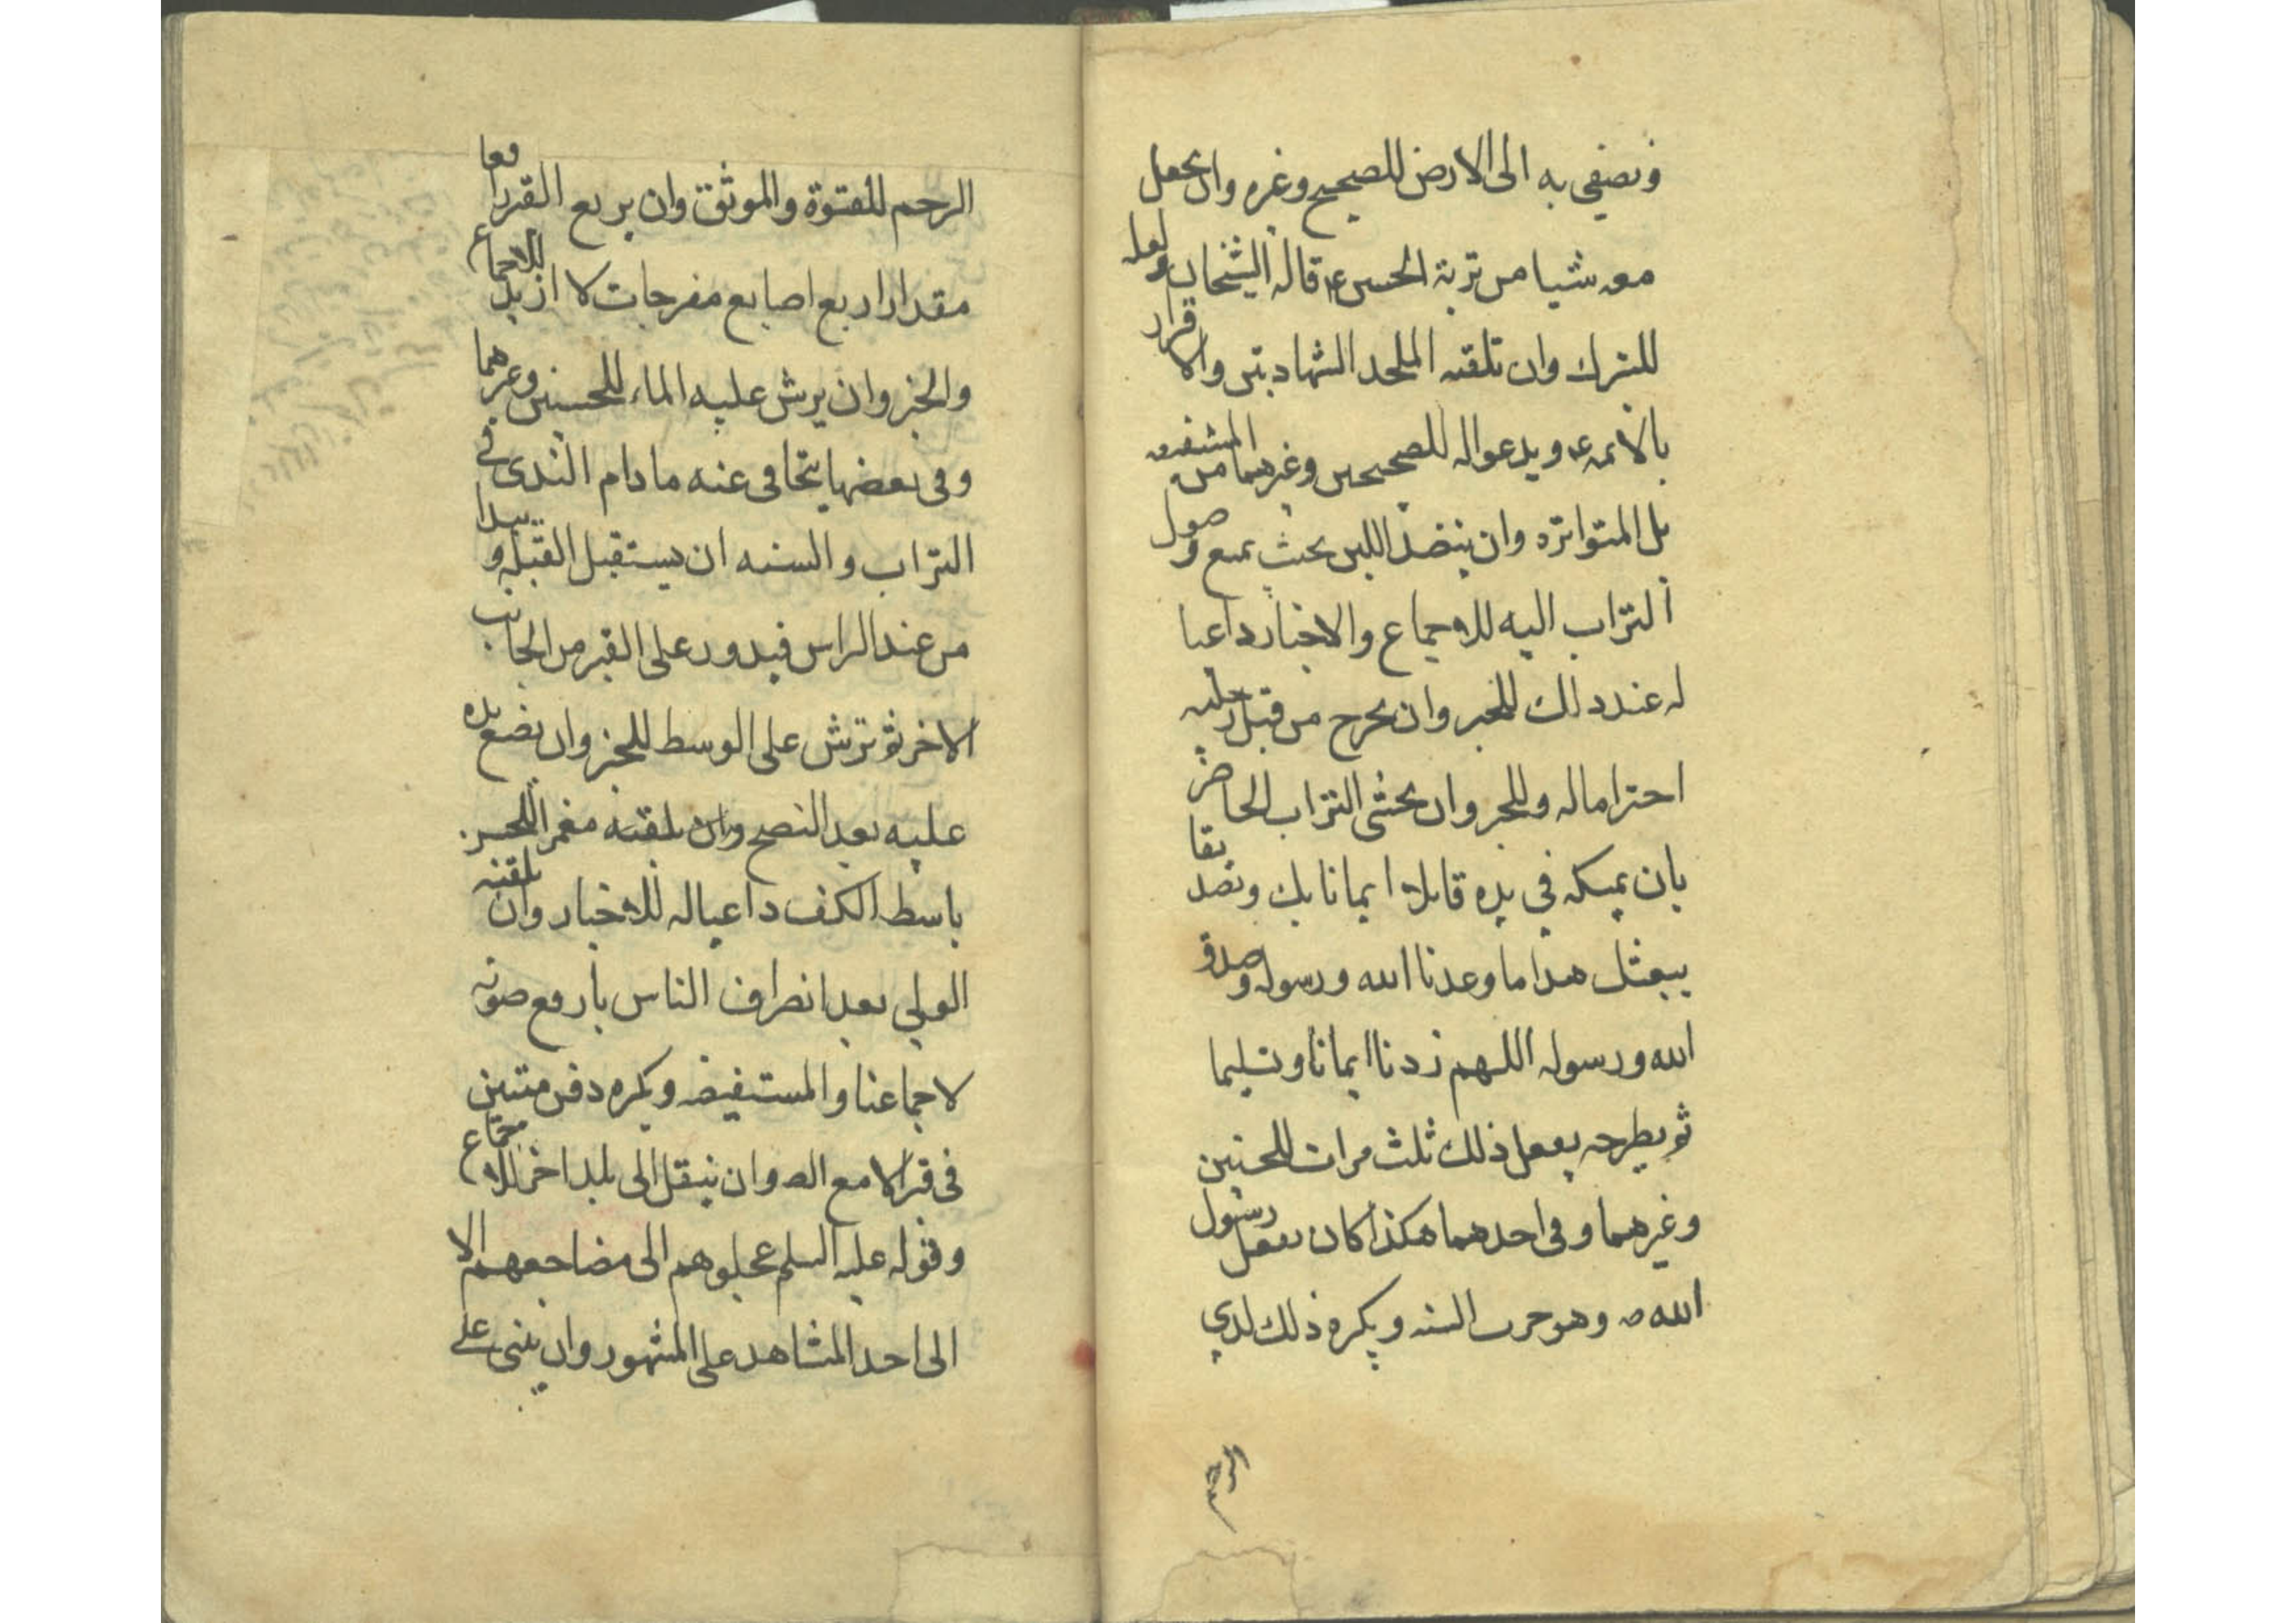 ويفضي به الى الارض للصحيح وغيره وان يجعل
معه شيا من تربة الحسين ع قاله الشيخان ولعله
للتبرك وان تلقنه الملحد الشهادتين والاقرار
بالائمه ع ويدعو له للصحيحين وغيرهما من المستفيضه
بل المتواتره وان ينضد اللبن بحيث يمنع وصول
التراب اليه للاجماع والاخبار داعيا
له عند ذلك للخبر وان يخرج من قبل رجليه
احتراما له وللخبر وان يحثي التراب الحاضر
بان يمسكه في يده قايلا ايمانا بك وتصديقا
ببعثك هذا ما وعدنا الله ورسوله وصدق
الله ورسوله اللهم زدنا ايمانا وتسليما
ثم يطرحه يفعل ذلك ثلث مرات للحسنين
وغيرهما وفي احدهما هكذا كان يفعل رسول
الله ص وهو جرت السنه ويكره ذلك لذي
الرحم
الرحم للقسوة والموثق وان يربع القبر رافعا
مقدار اربع اصابع مفرجات لا ازيد للاجماع
والخبر وان يرش عليه الماء للحسنين وغيرهما
وفي بعضها يتجافى عنه ما دام الندى في
التراب والسنه ان يستقبل القبله ويبدا
من عند الراس فيدور على القبر من الجانب
الاخر ثم ترش على الوسط للخبر وان يضع يده
عليه بعد النضح مغمزا للحسن
باسط الكف داعيا له للاخبار وان يلقنه
الولي بعد انصراف الناس بارفع صوته
لاجماعنا والمستفيضه ويكره دفن ميتين
في قبر الا مع الضه وان ينقل الى بلد اخر للاجماع
وقوله عليه السلم عجلوهم الى مضاجعهم الا
الى احد المشاهد على المشهور وان يبنى على